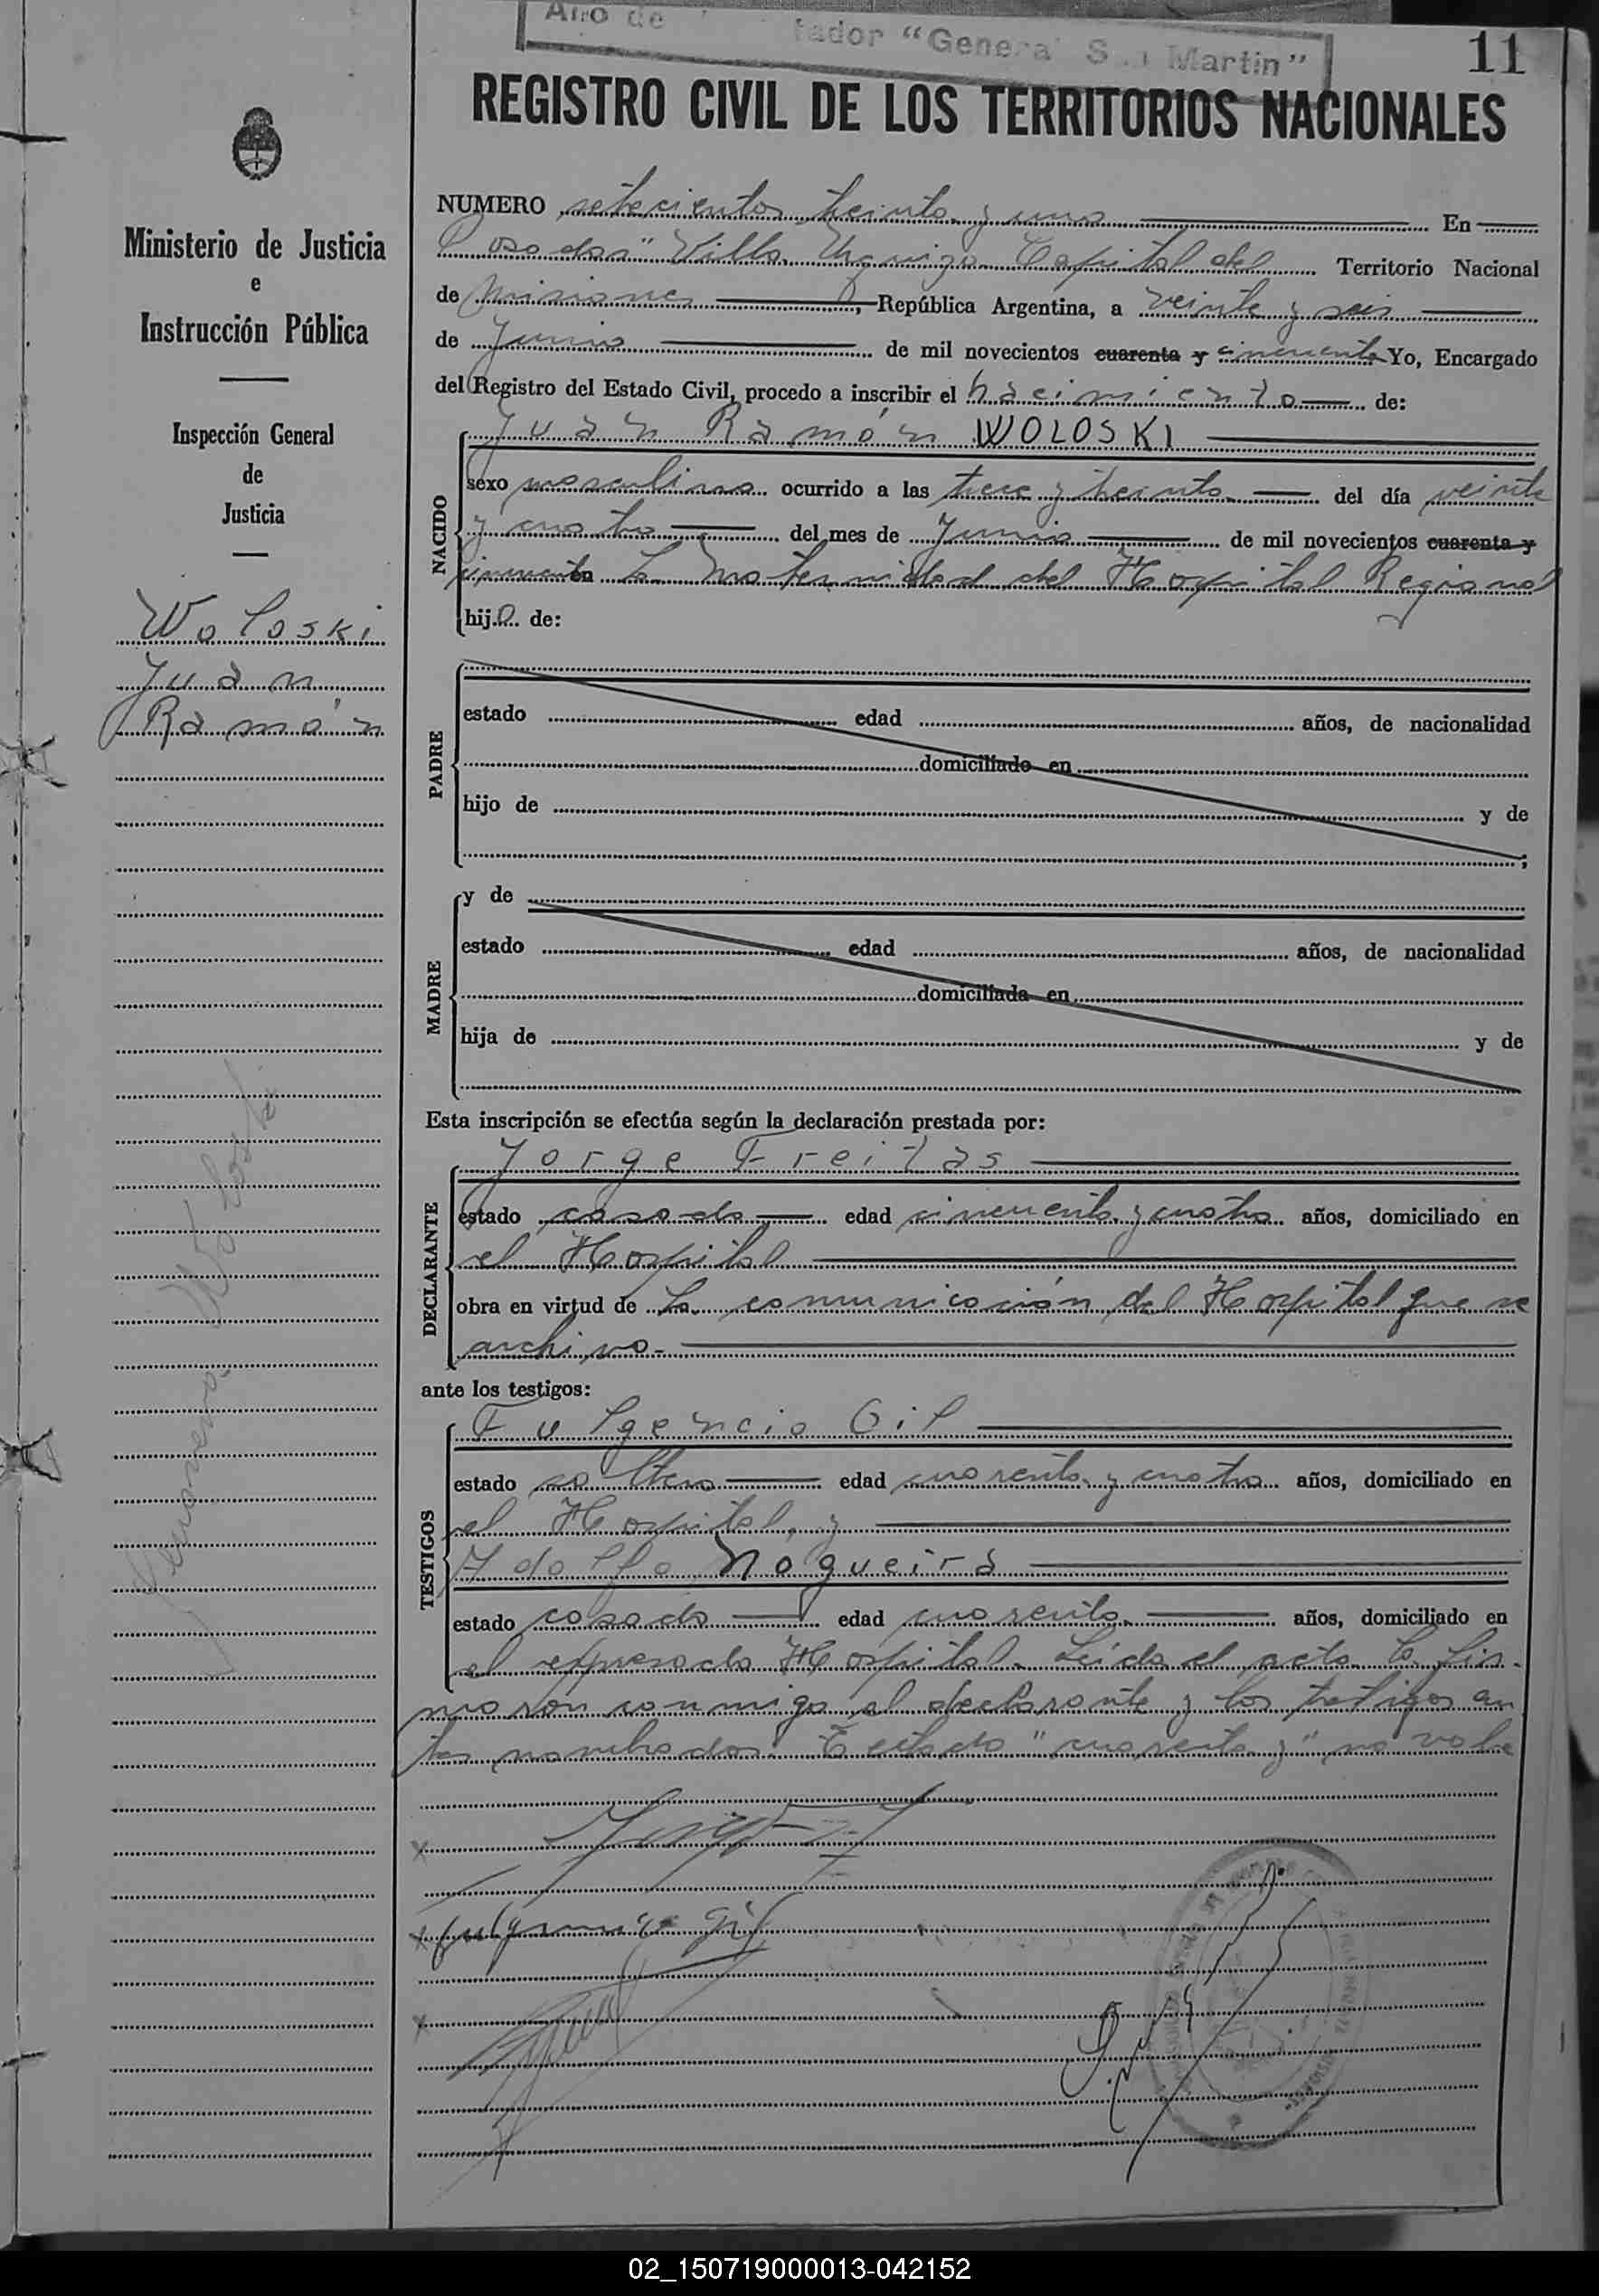 Año de tador "General San Martin"
11
REGISTRO CIVIL DE LOS TERRITORIOS NACIONALES
Ministerio de Justicia
e
Instrucción Pública
Inspección General
de
Justicia
Woloski
Juan
Ramón
Woloski
NUMERO setecientos treinta y uno En
Posadas "Villa Urquiza Capital del Territorio Nacional
de Misiones, República Argentina, a veinte y seis
de Junio de mil novecientos cuarenta y cincuenta Yo, Encargado
del Registro del Estado Civil, procedo a inscribir el nacimiento de:
Juan Ramón WOLOSKI
NACIDO
sexo masculino ocurrido a las trece y treinta del día veinte
y cuatro del mes de Junio de mil novecientos cuarenta y
cincuenta en la Maternidad del Hospital Regional
hijo de:
PADRE
estado edad años, de nacionalidad
domiciliado en
hijo de y de
;
MADRE
y de
estado edad años, de nacionalidad
domiciliada en
hija de y de
Esta inscripción se efectúa según la declaración prestada por:
DECLARANTE
Jorge Freitas
estado casado edad cincuenta y cuatro años, domiciliado en
el Hospital
obra en virtud de la comunicación del Hospital que se
archivo.
ante los testigos:
TESTIGOS
Fulgencio Gil
estado soltero edad cuarenta y cuatro años, domiciliado en
el Hospital, y
Adolfo Nogueira
estado casado edad cuarenta años, domiciliado en
el expresado Hospital. Leida el acta la fir-
maron conmigo el declarante y los testigos an
tes nombrados. Testado "cuarenta y" no vale
x
x Fulgencio Gil
x
02_150719000013-042152